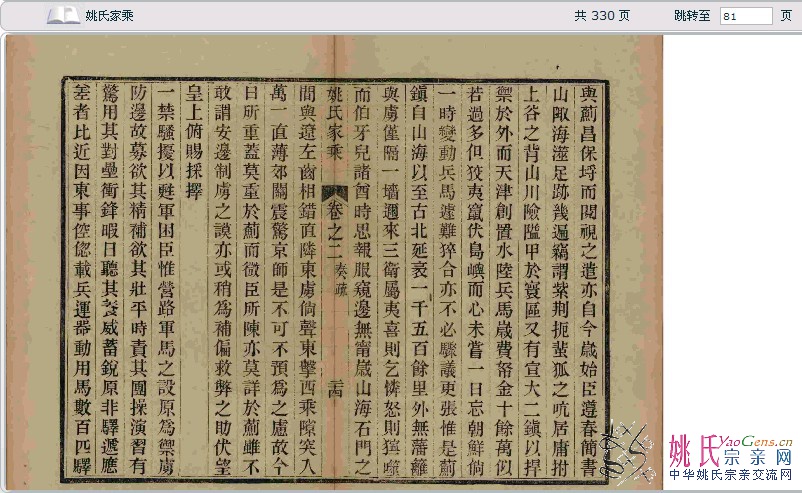 姚氏家乘
共 330 页
跳转至 81 页
與薊昌保埒而閱視之遣亦自今歲始臣遵奉簡書
山陬海澨足跡幾遍竊謂紫荆扼蜚狐之吭居庸拊
上谷之背山川險隘甲於寰區又有宣大二鎮以捍
禦於外而天津創置水陸兵馬歲費帑金十餘萬似
若過多但狡夷竄伏島嶼而心未嘗一日忘朝鮮倘
一時變動兵馬遽難猝合亦不必驟議更張惟是薊
鎮自山海以至古北延袤一千五百餘里外無藩籬
與虜僅隔一墻邇來三衛屬夷喜則乞憐怒則獷噬
而伯牙兒諸酋時思報服窺邊無甯歲山海石門之
姚氏家乘 卷之二 奏疏 二十四
間與遼左齒相錯直隣東虜倘聲東擊西乘隙突入
萬一直薄郊關震驚京師是不可不預為之慮故今
日所重蓋莫重於薊而微臣所陳亦莫詳於薊雖不
敢謂安邊制虜之謨亦或稍為補偏救弊之助伏望
皇上俯賜採擇
一禁騷擾以甦軍困臣惟營路軍馬之設原為禦虜
防邊故募欲其精補欲其壯平時責其團操演習有
驚用其對壘衝鋒暇日聽其養威蓄銳原非驛遞應
差者比近因東事倥偬載兵運器動用馬數百匹驛
姚氏 YaoGens.cn
宗亲网
中华姚氏宗亲交流网